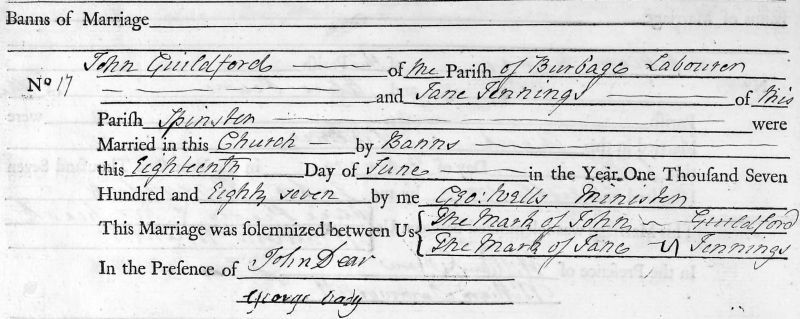 Banns of Marriage
No 17 John Guildford of the Parish of Burbage Labourer
and Jane Jennings of this
Parish Spinster were
Married in this Church by Banns
this Eighteenth Day of June in the Year One Thousand Seven
Hundred and Eighty seven by me Geo: Wells Minister
This Marriage was solemnized between Us The Mark of John Guildford
The Mark of Jane Jennings
In the Presence of John Dear
George